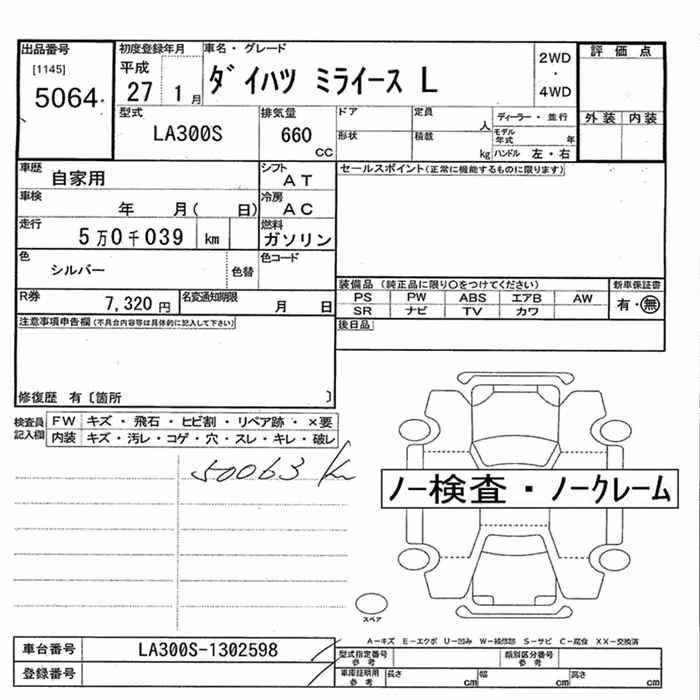 出品番号
[1145]
5064
初度登録年月
平成
27 1 月
車名・グレード
ダイハツ ミライース L
2WD
・
4WD
評価点
外装 内装
型式
LA300S
排気量
660
CC
ドア
形状
定員
人
積載
kg
ディーラー・並行
モデル年式 年
ハンドル 左・右
車歴
自家用
シフト
AT
セールスポイント(正常に機能するものに限ります)
車検
年 月( 日)
冷房
AC
走行
5万0千039 km
燃料
ガソリン
色
シルバー
色替
色コード
R券
7,320 円
名変通知期限
月 日
装備品 (純正品に限り○をつけてください)
PS PW ABS エアB AW
SR ナビ TV カワ
新車保証書
有・無
後日品
注意事項申告欄(不具合内容等は具体的に記入して下さい)
修復歴 有〔箇所 〕
検査員記入欄
FW キズ・飛石・ヒビ割・リペア跡・×要
内装 キズ・汚レ・コゲ・穴・スレ・キレ・破レ
50063 km
ノー検査・ノークレーム
スペア
A-キズ E-エクボ U-凹み W-補修跡 S-サビ C-腐食 XX-交換済
車台番号 LA300S-1302598
登録番号
型式指定番号
参考
類別区分番号
参考
車庫証明用
参考
長さ cm 幅 cm 高さ cm